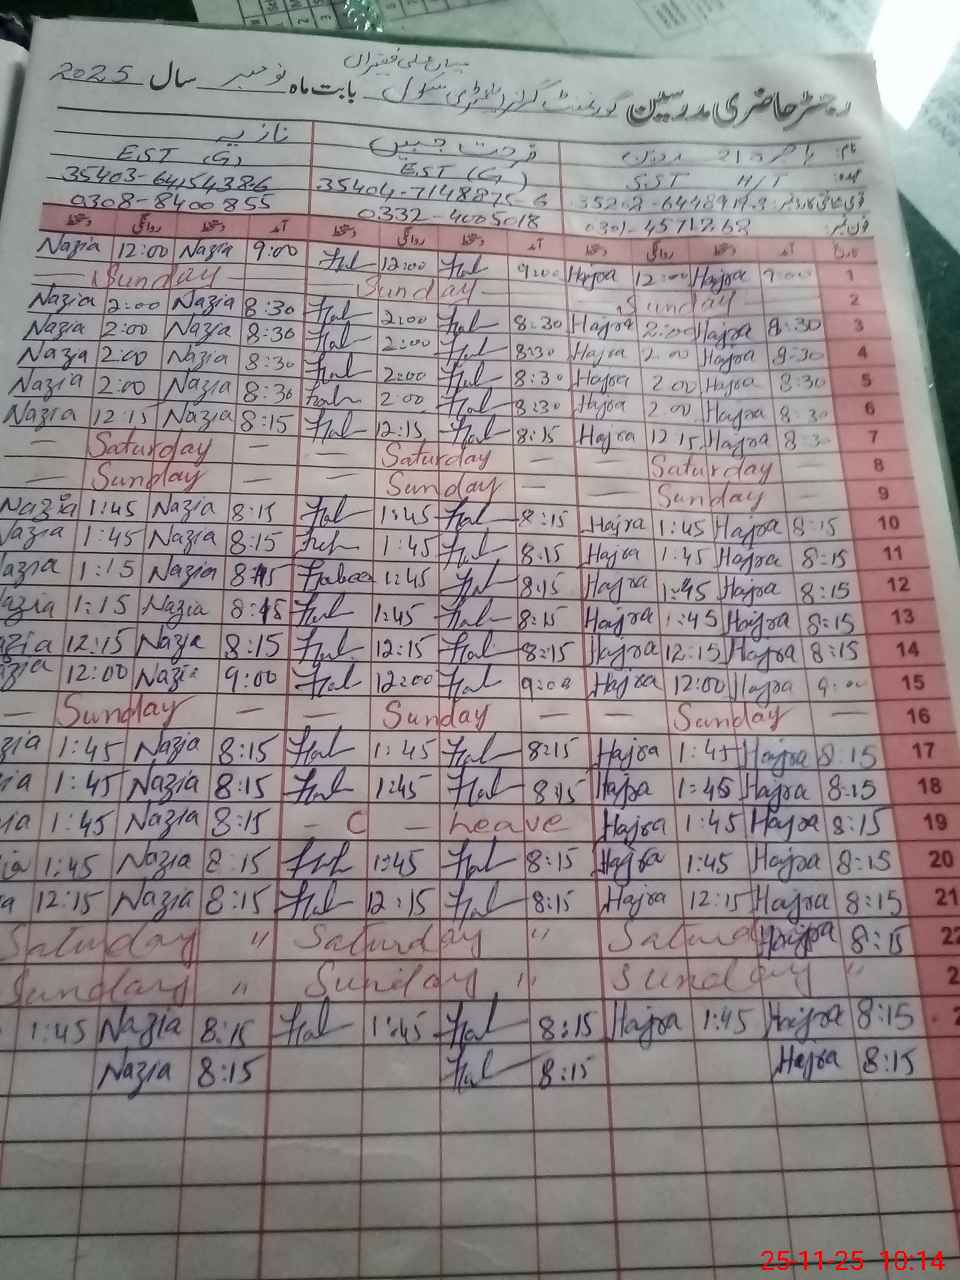 میاں علی فقیراں
رجسٹر حاضری مدرسین گورنمنٹ گرلز ایلیمنٹری سکول بابت ماہ نومبر سال 2025
نام: ہاجرہ فرحت جبیں نازیہ
عہدہ: SST H/T EST (G) EST (G)
35202-6448919-3 35404-7148875-6 35403-6415438-6
فون نمبر: 0301-4571262 0332-4005018 0308-8400855
تاریخ آمد دستخط روانگی دستخط آمد دستخط روانگی دستخط آمد دستخط روانگی دستخط
Nazia 12:00 Nazia 9:00 Fal 12:00 Fal 9:00 Hajra 12:00 Hajra 9:00 1
Sunday Sunday Sunday 2
Nazia 2:00 Nazia 8:30 Fal 2:00 Fal 8:30 Hajra 2:00 Hajra 8:30 3
Nazia 2:00 Nazia 8:30 Fal 2:00 Fal 8:30 Hajra 2:00 Hajra 8:30 4
Nazia 2:00 Nazia 8:30 Fal 2:00 Fal 8:30 Hajra 2:00 Hajra 8:30 5
Nazia 2:00 Nazia 8:30 Fal 2:00 Fal 8:30 Hajra 2:00 Hajra 8:30 6
Nazia 12:15 Nazia 8:15 Fal 12:15 Fal 8:15 Hajra 12:15 Hajra 8:30 7
— Saturday — — Saturday — — Saturday — 8
— Sunday — — Sunday — — Sunday — 9
Nazia 1:45 Nazia 8:15 Fal 1:45 Fal 8:15 Hajra 1:45 Hajra 8:15 10
Nazia 1:45 Nazia 8:15 Fal 1:45 Fal 8:15 Hajra 1:45 Hajra 8:15 11
azia 1:15 Nazia 8:15 1:45 Fal 8:15 Hajra 1:45 Hajra 8:15 12
azia 1:15 Nazia 8:15 Fal 1:45 Fal 8:15 Hajra 1:45 Hajra 8:15 13
azia 12:15 Nazia 8:15 Fal 12:15 Fal 8:15 Hajra 12:15 Hajra 8:15 14
zia 12:00 Nazia 9:00 Fal 12:00 Fal 9:00 Hajra 12:00 Hajra 9:00 15
— Sunday — — Sunday — — Sunday — 16
zia 1:45 Nazia 8:15 Fal 1:45 Fal 8:15 Hajra 1:45 Hajra 8:15 17
ia 1:45 Nazia 8:15 Fal 1:45 Fal 8:15 Hajra 1:45 Hajra 8:15 18
ia 1:45 Nazia 8:15 — C — Leave Hajra 1:45 Hajra 8:15 19
ia 1:45 Nazia 8:15 Fal 1:45 Fal 8:15 Hajra 1:45 Hajra 8:15 20
a 12:15 Nazia 8:15 Fal 12:15 Fal 8:15 Hajra 12:15 Hajra 8:15 21
Saturday " Saturday " Saturday Hajra 8:15 22
Sunday " Sunday " Sunday " 2
1:45 Nazia 8:15 Fal 1:45 Fal 8:15 Hajra 1:45 Hajra 8:15 2
Nazia 8:15 Fal 8:15 Hajra 8:15
25-11-25 10:14